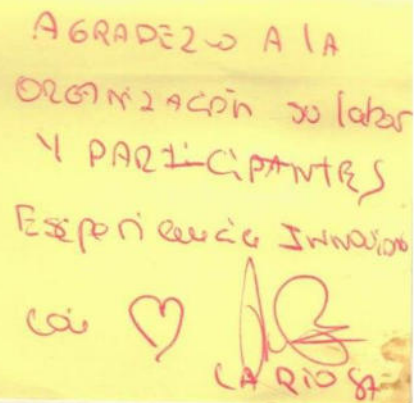 AGRADEZCO A LA
ORGANIZACIÓN su labor
Y PARTICIPANTES
Experiencia Innovadora
con ♡
LA RIOJA